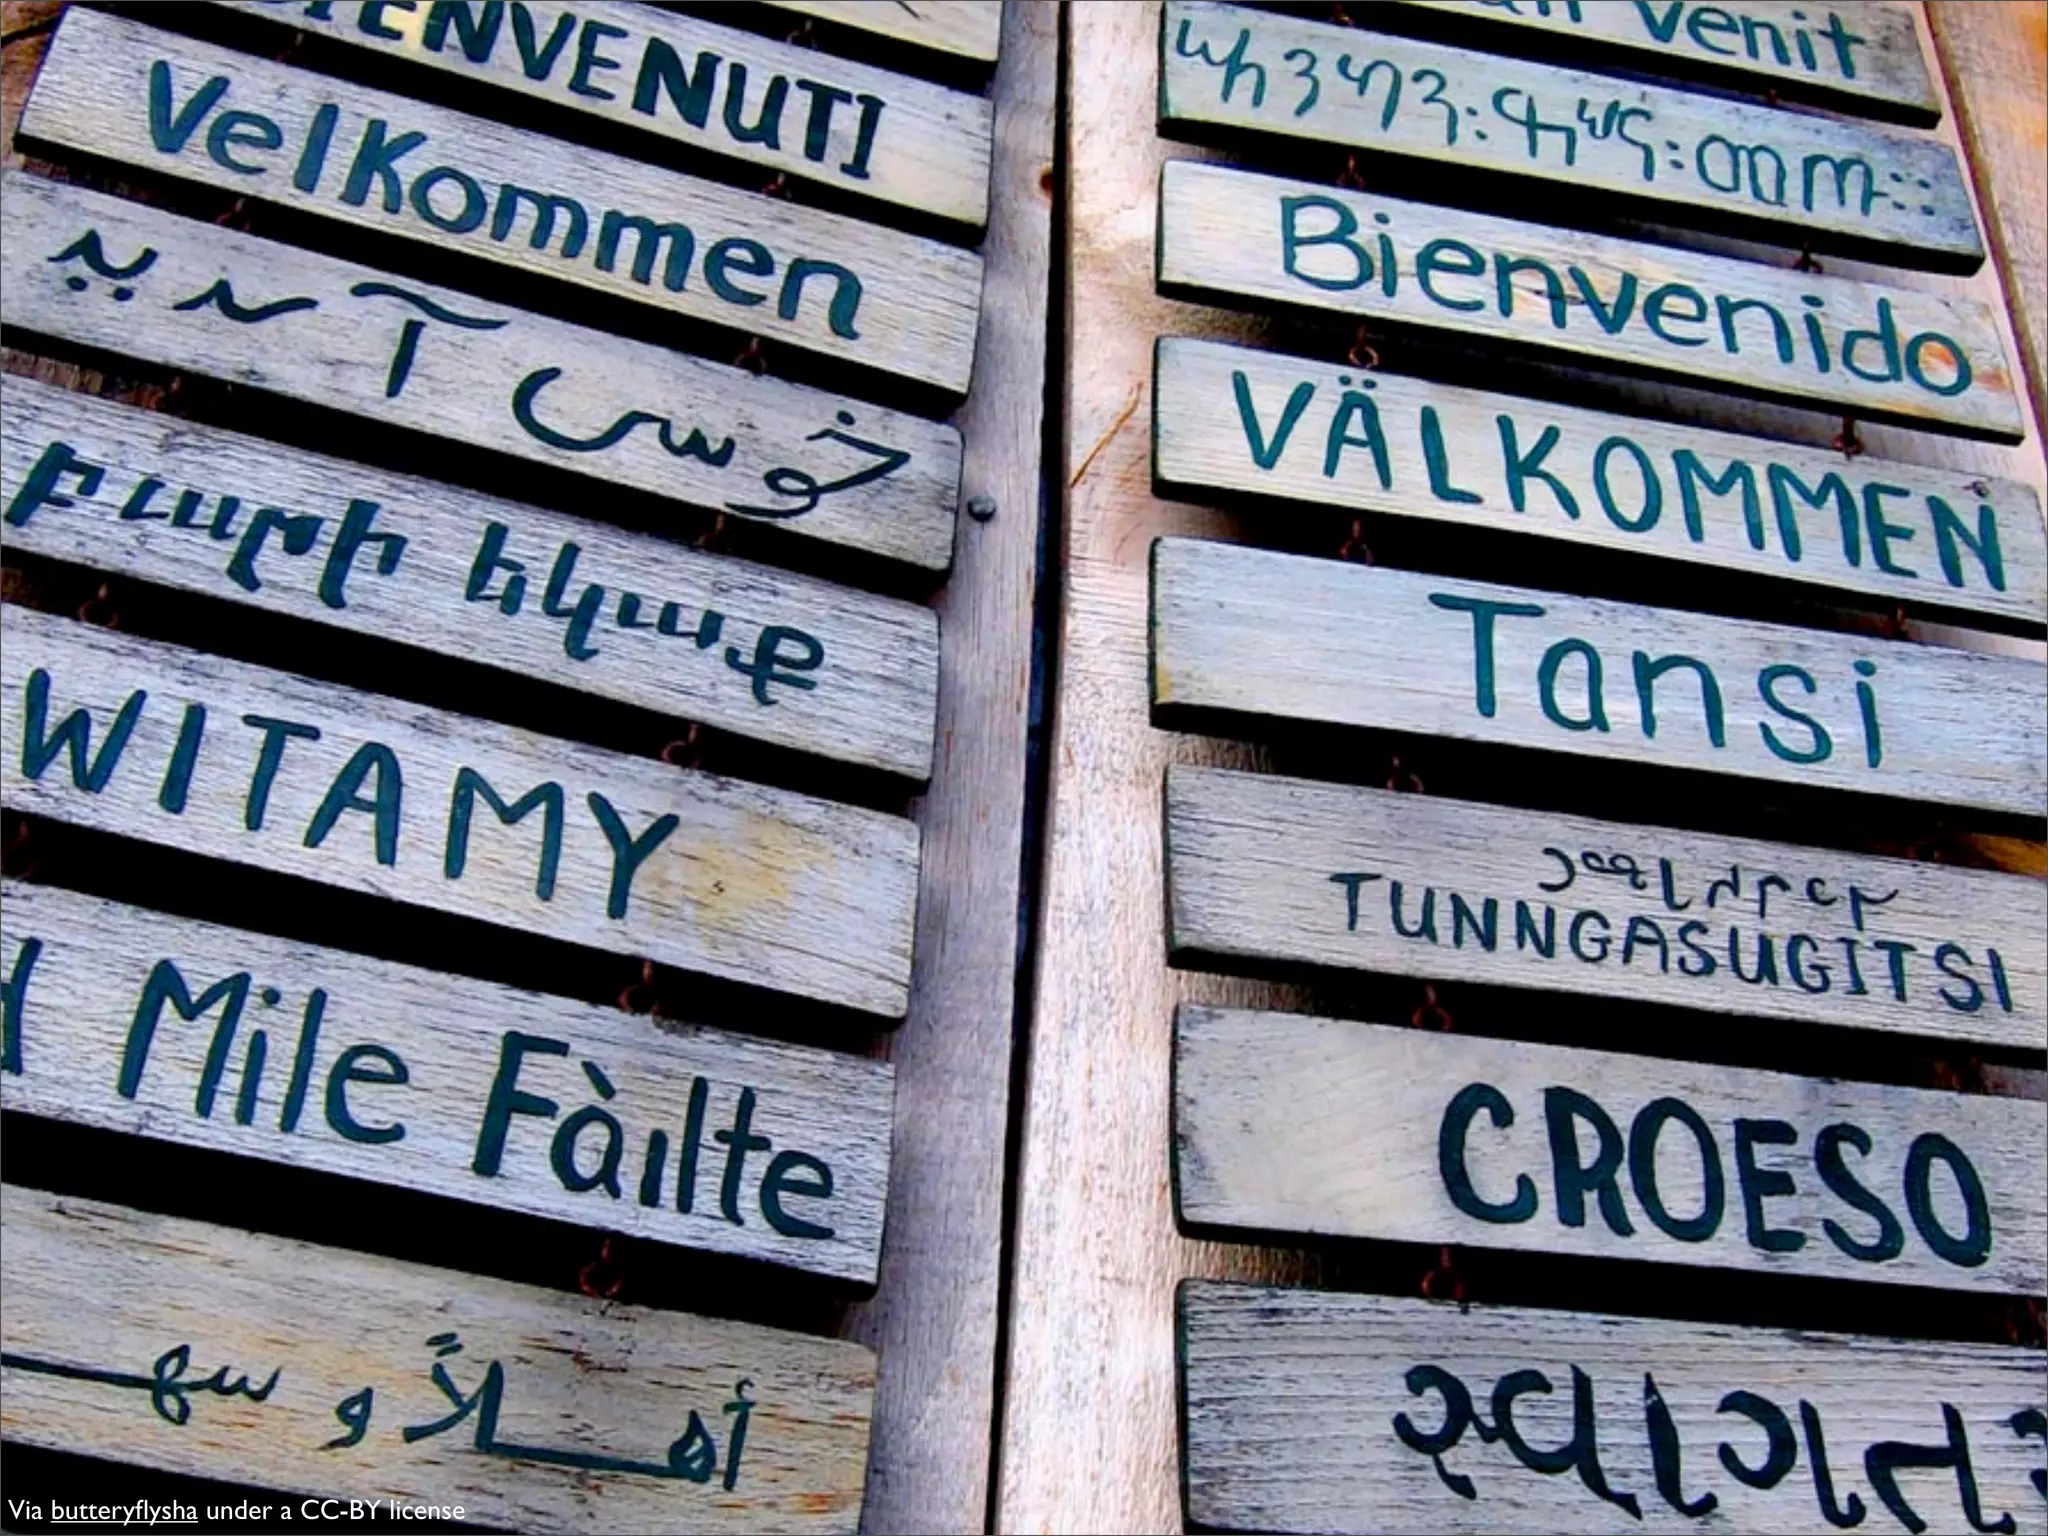 BIENVENUTI
Velkommen
خوش آمدید
Բարի եկաք
WITAMY
Mile Fàilte
أهلاً و سهـ
venit
Bienvenido
VÄLKOMMEN
Tansi
TUNNGASUGITSI
CROESO
સ્વાગત
Via butteryflysha under a CC-BY license